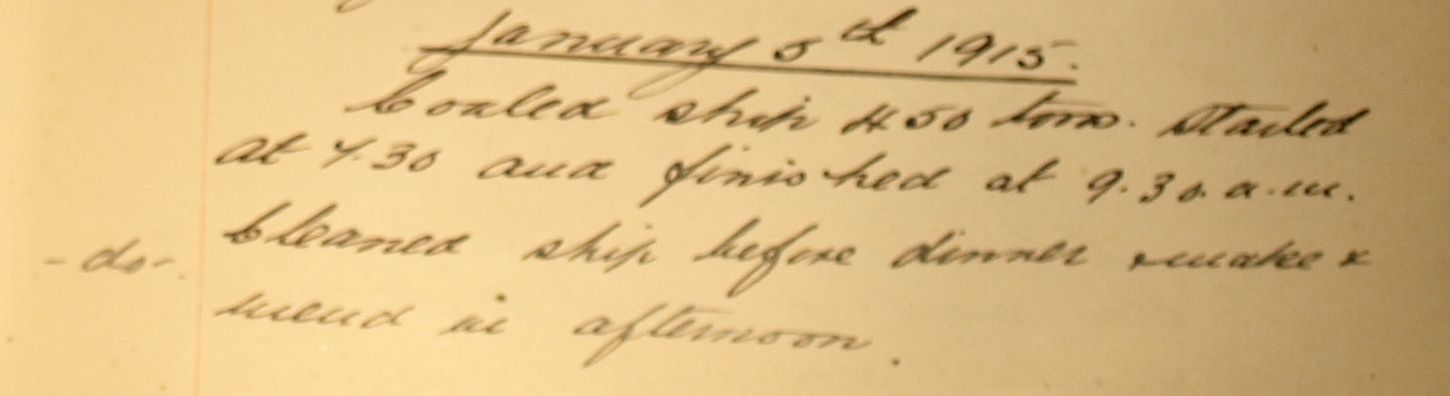 January 5th 1915.
Coaled ship 450 tons. Started
at 7.30 and finished at 9.30. a.m.
Cleaned ship before dinner & make &
-do-.
mend in afternoon.